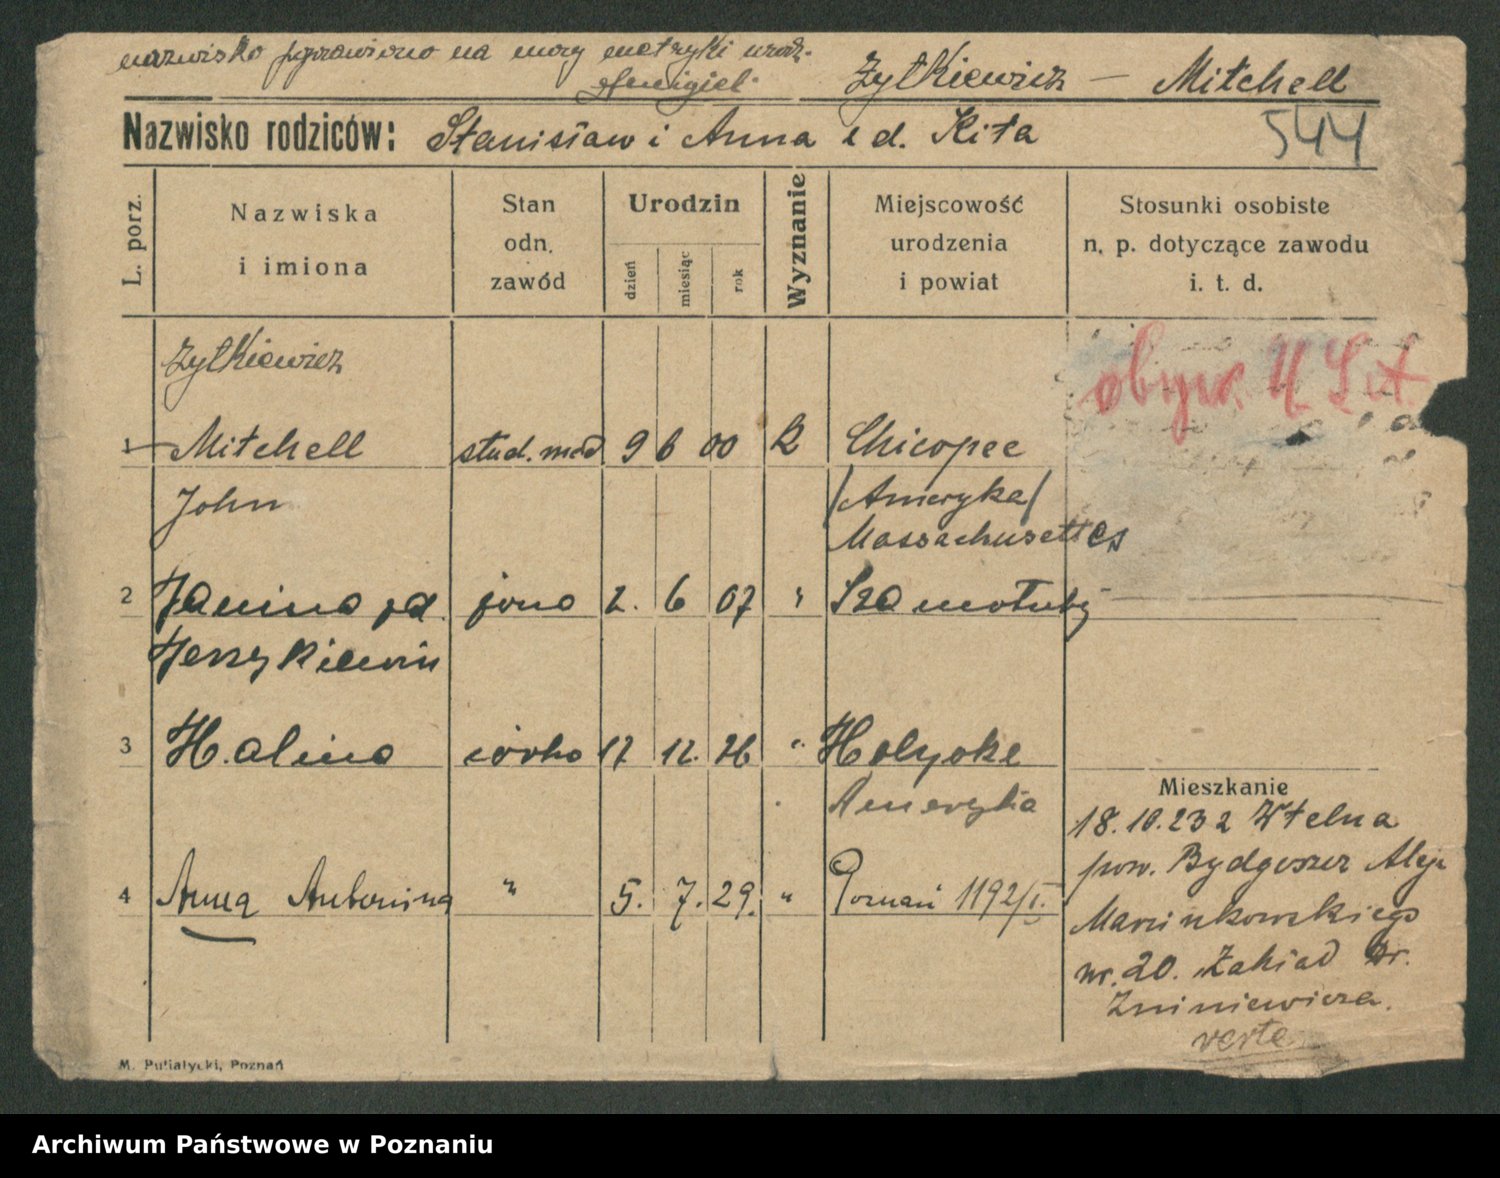 nazwisko poprawiono na mocy metryki urodz.
Żytkiewicz — Mitchell
Nazwisko rodziców: Stanisław i Anna z d. Kita 544
L. porz.
Nazwiska
i imiona
Stan
odn.
zawód
Urodzin
dzień
miesiąc
rok
Wyznanie
Miejscowość
urodzenia
i powiat
Stosunki osobiste
n. p. dotyczące zawodu
i. t. d.
Żytkiewicz
obyw. USA
1 Mitchell stud. med 9 6 00 k Chicopee
John /Ameryka/
Massachusettes
2 Janina zd. żona 2. 6 07 " Szamotuły
Jerzykiewicz
3 Halina córka 17 12. 26 " Holyoke
Ameryka
4 Anna Antonina " 5. 7. 29. " Poznań 1192/I.
Mieszkanie
18.10.23 z Wtelna
pow. Bydgoszcz Aleje
Marcinkowskiego
nr. 20. Zakład Dr.
Żniniewicza.
verte
M. Putiatycki, Poznań
Archiwum Państwowe w Poznaniu